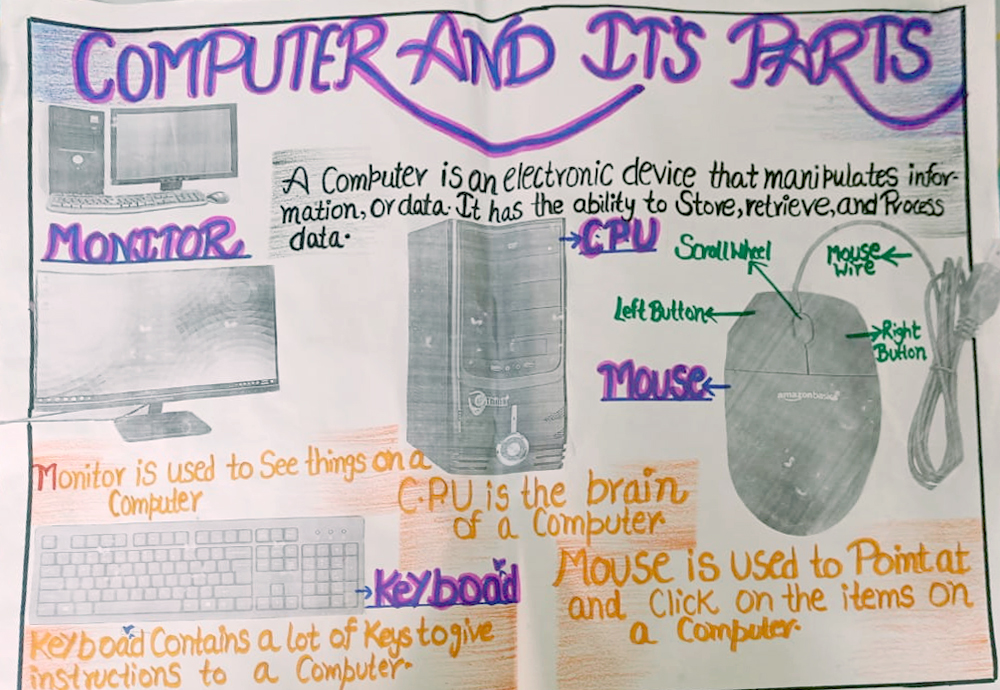 COMPUTER AND IT'S PARTS
A Computer is an electronic device that manipulates infor-
mation, or data. It has the ability to Store, retrieve, and Process
data.
MONITOR
CPU
Scroll Wheel
Mouse
Wire
Left Button
Right
Button
Mouse
amazonbasics
Monitor is used to See things on a
Computer
C.P.U is the brain
of a Computer.
Keyboard
Mouse is used to Point at
and Click on the items on
a Computer.
Keyboard Contains a lot of Keys to give
instructions to a Computer.